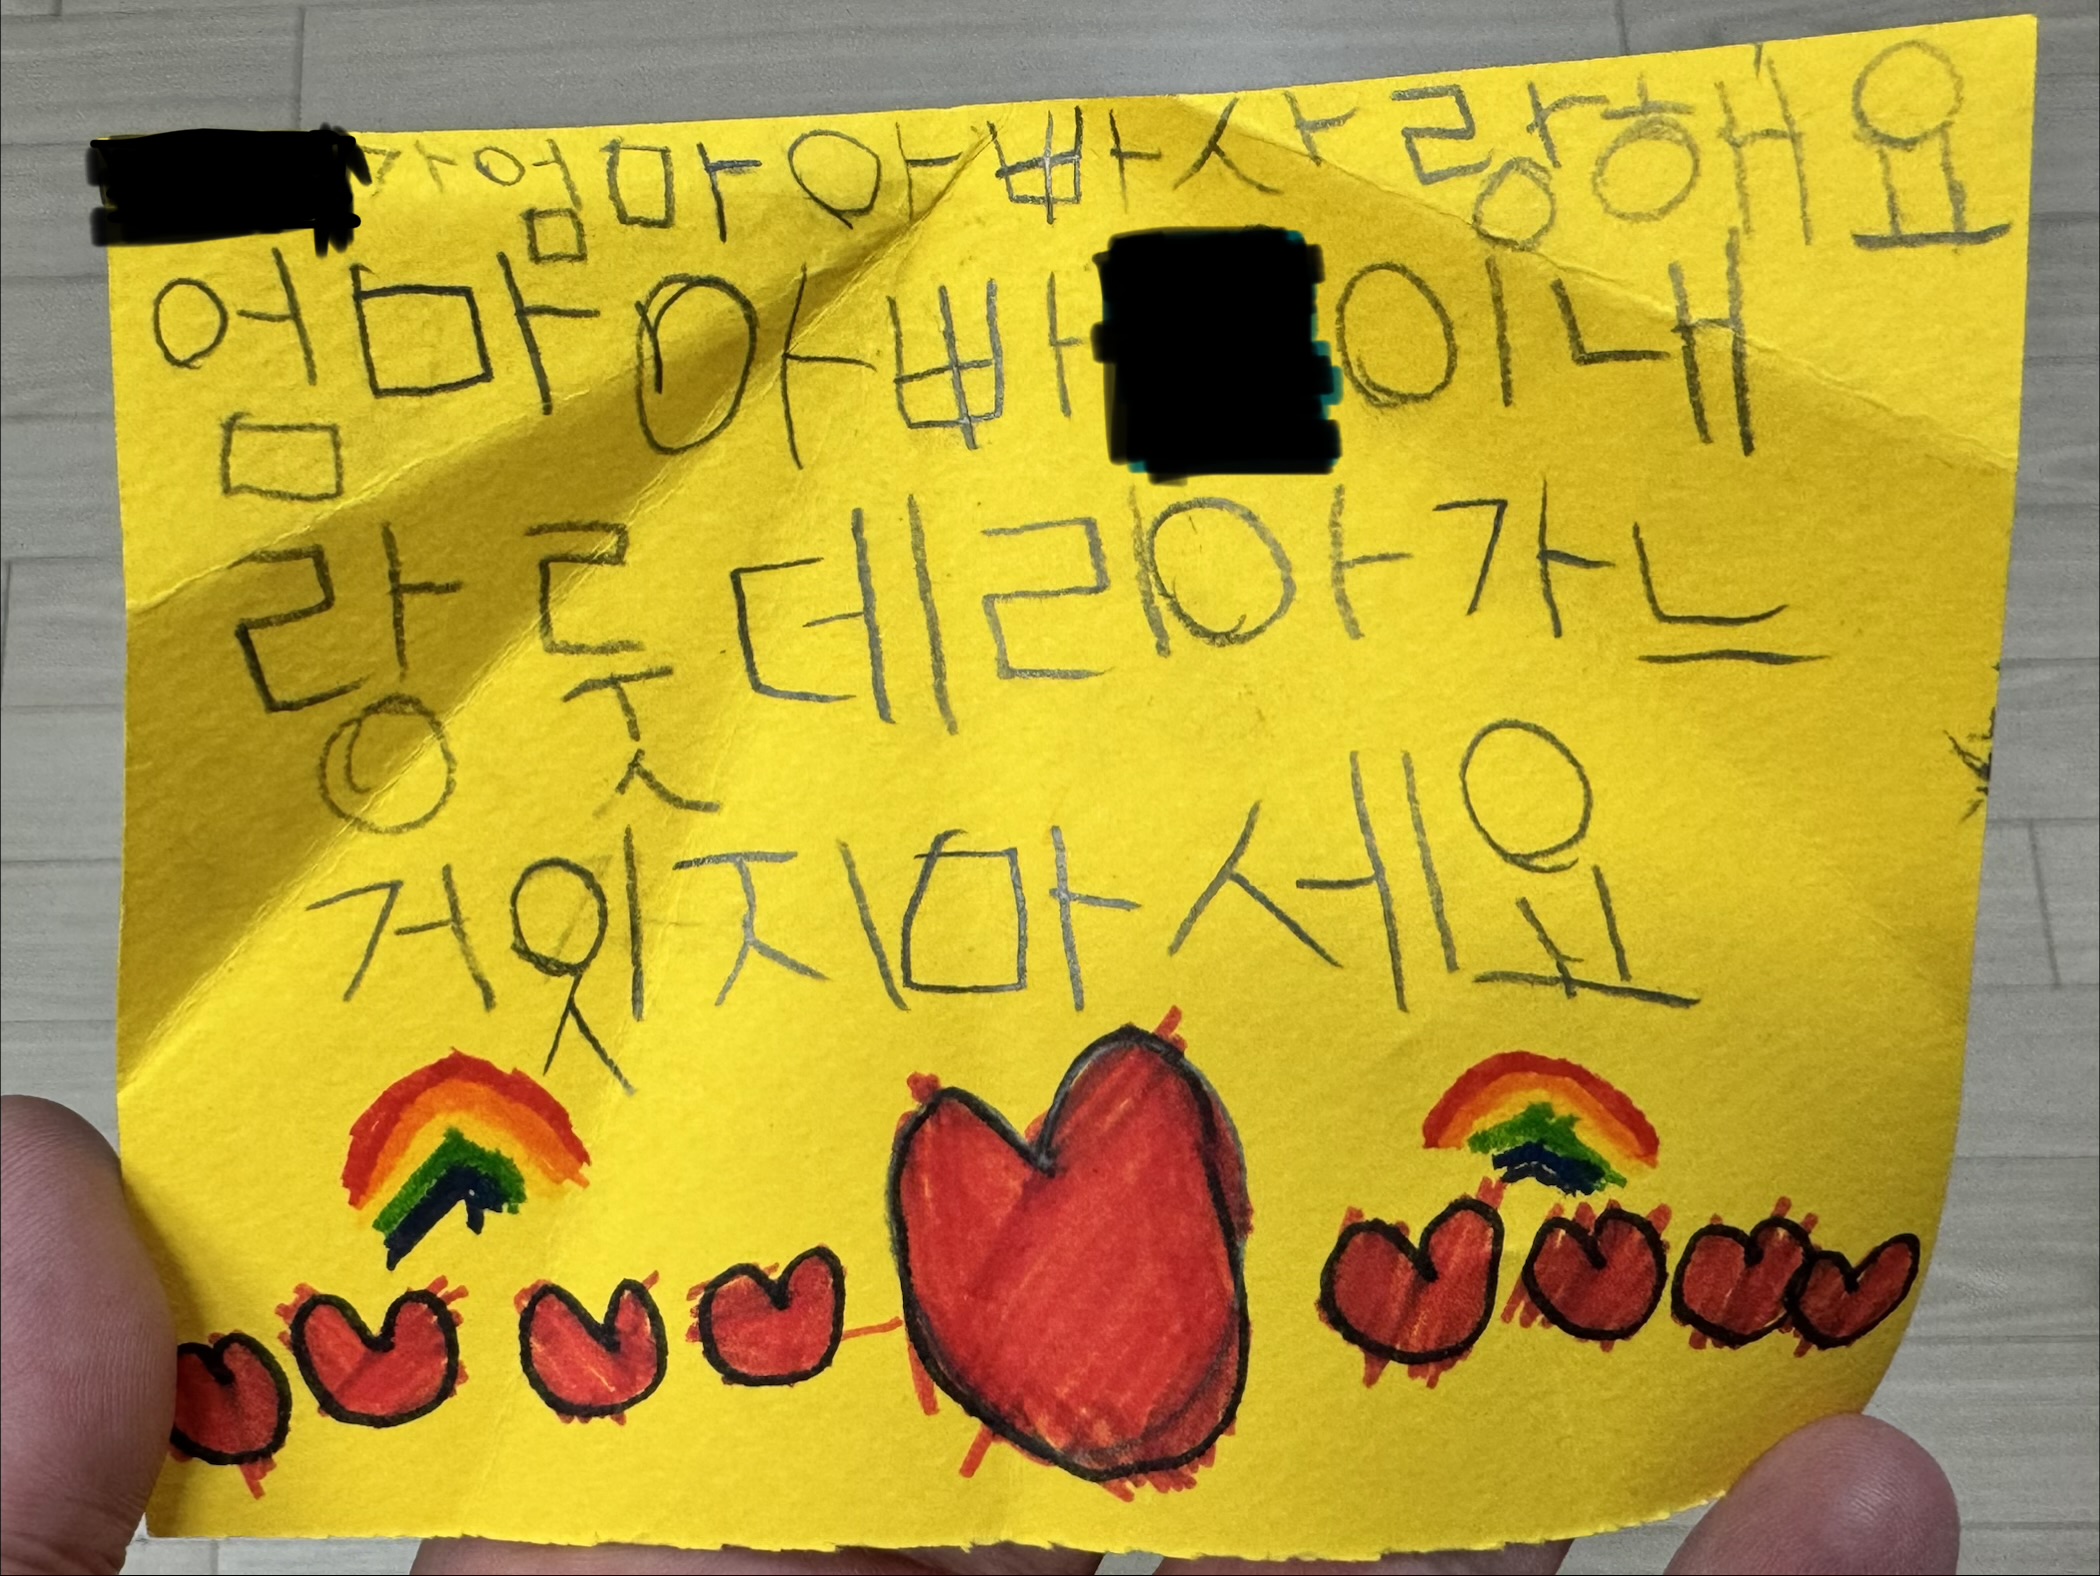 가엄마아빠사랑해요
엄마아빠 이내
랑룻데리아가느
거잇지마세요